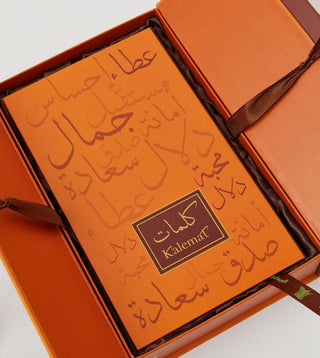 عطاء
إحساس
مستقبل
جمال
أمانة
صدق
دلال
سعادة
محبة
عطاء
دلال
كلمات
Kalemat
أمانة
دلال
محبة
جمال
صدق
سعادة